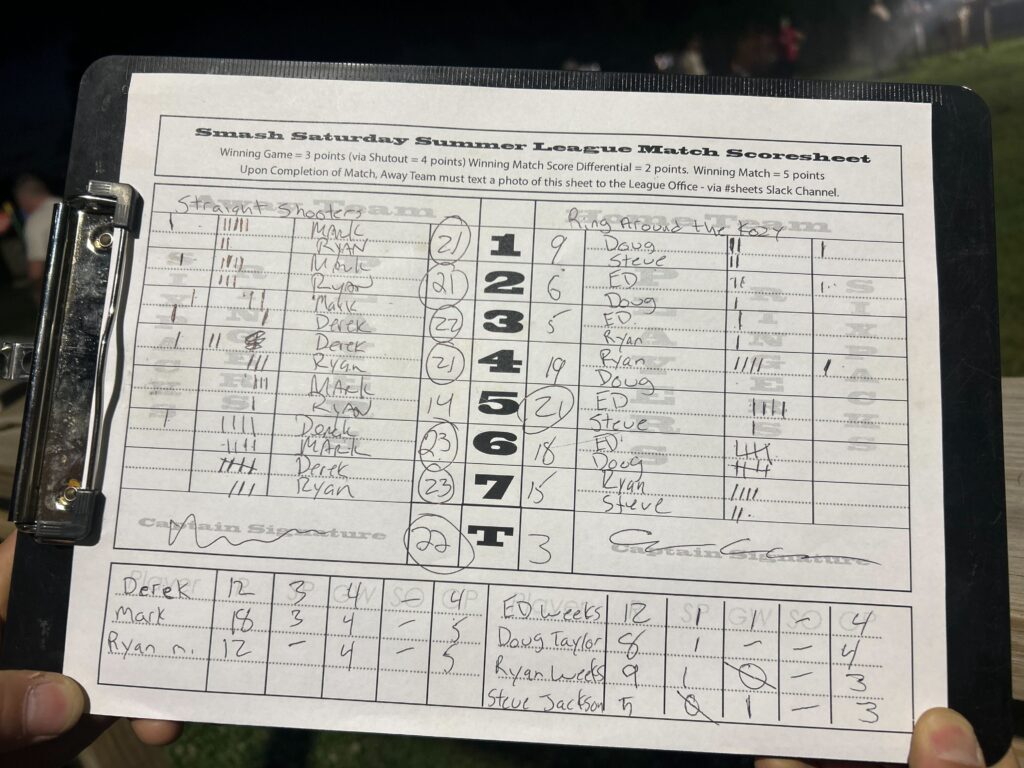 Smash Saturday Summer League Match Scoresheet
Winning Game = 3 points (via Shutout = 4 points) Winning Match Score Differential = 2 points. Winning Match = 5 points
Upon Completion of Match, Away Team must text a photo of this sheet to the League Office - via #sheets Slack Channel.
Away Team Straight Shooters
Home Team Ring Around the Rozy
SIXPACKS RINGERS PLAYERS
PLAYERS RINGERS SIXPACKS
MARK 21 1 9 Doug
RYAN Steve
Mark 21 2 6 ED
Ryan Doug
Mark 22 3 5 ED
Derek Ryan
Derek 21 4 19 Ryan
Ryan Doug
MARK 14 5 21 ED
RYAN Steve
Derek 23 6 18 ED
MARK Doug
Derek 23 7 15 Ryan
Ryan Steve
Captain Signature 22 T 3 Captain Signature
Player R SP GW SO GP Player R SP GW SO GP
Derek 12 3 4 - 4 ED Weeks 12 1 1 - 4
Mark 18 3 4 - 5 Doug Taylor 8 1 - - 4
Ryan n. 12 - 4 - 5 Ryan Weeks 9 1 0 - 3
Steve Jackson 5 0 1 - 3